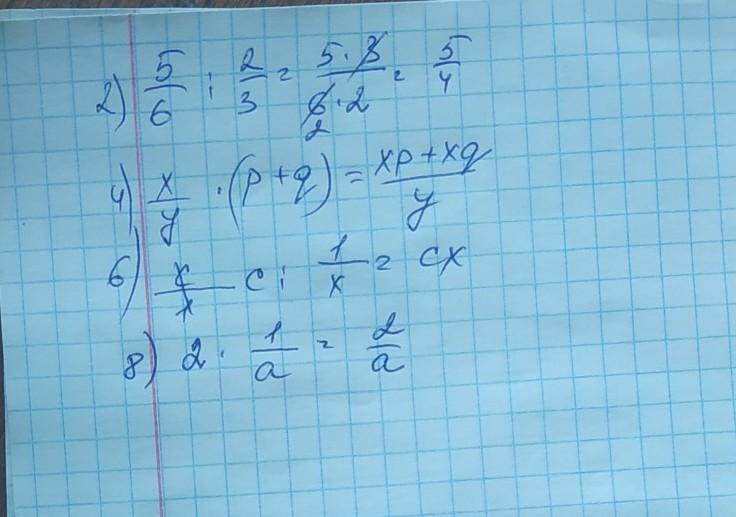 2) 5/6 : 2/3 = 5·3/6·2 = 5/4
2
4) x/y · (p+q) = xp+xq/y
6) c : 1/x = cx
8) 2 · 1/a = 2/a